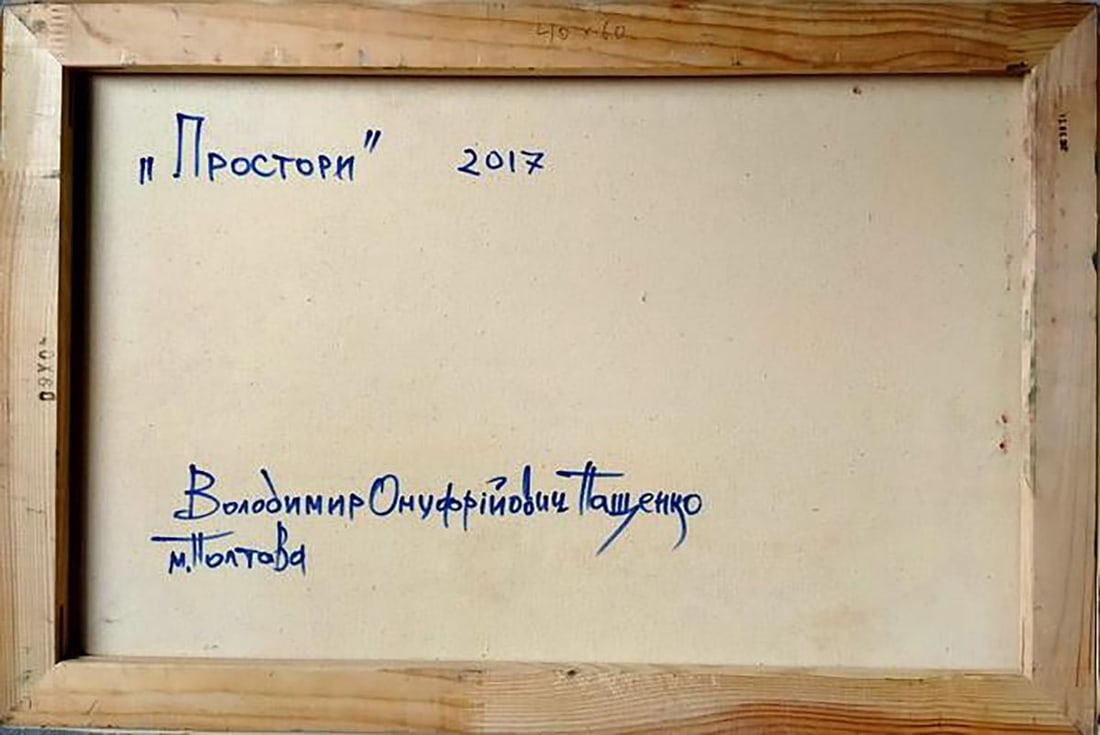 40 x 60
„Простори" 2017
40X60
Володимир Онуфрійович Пащенко
м.Полтава